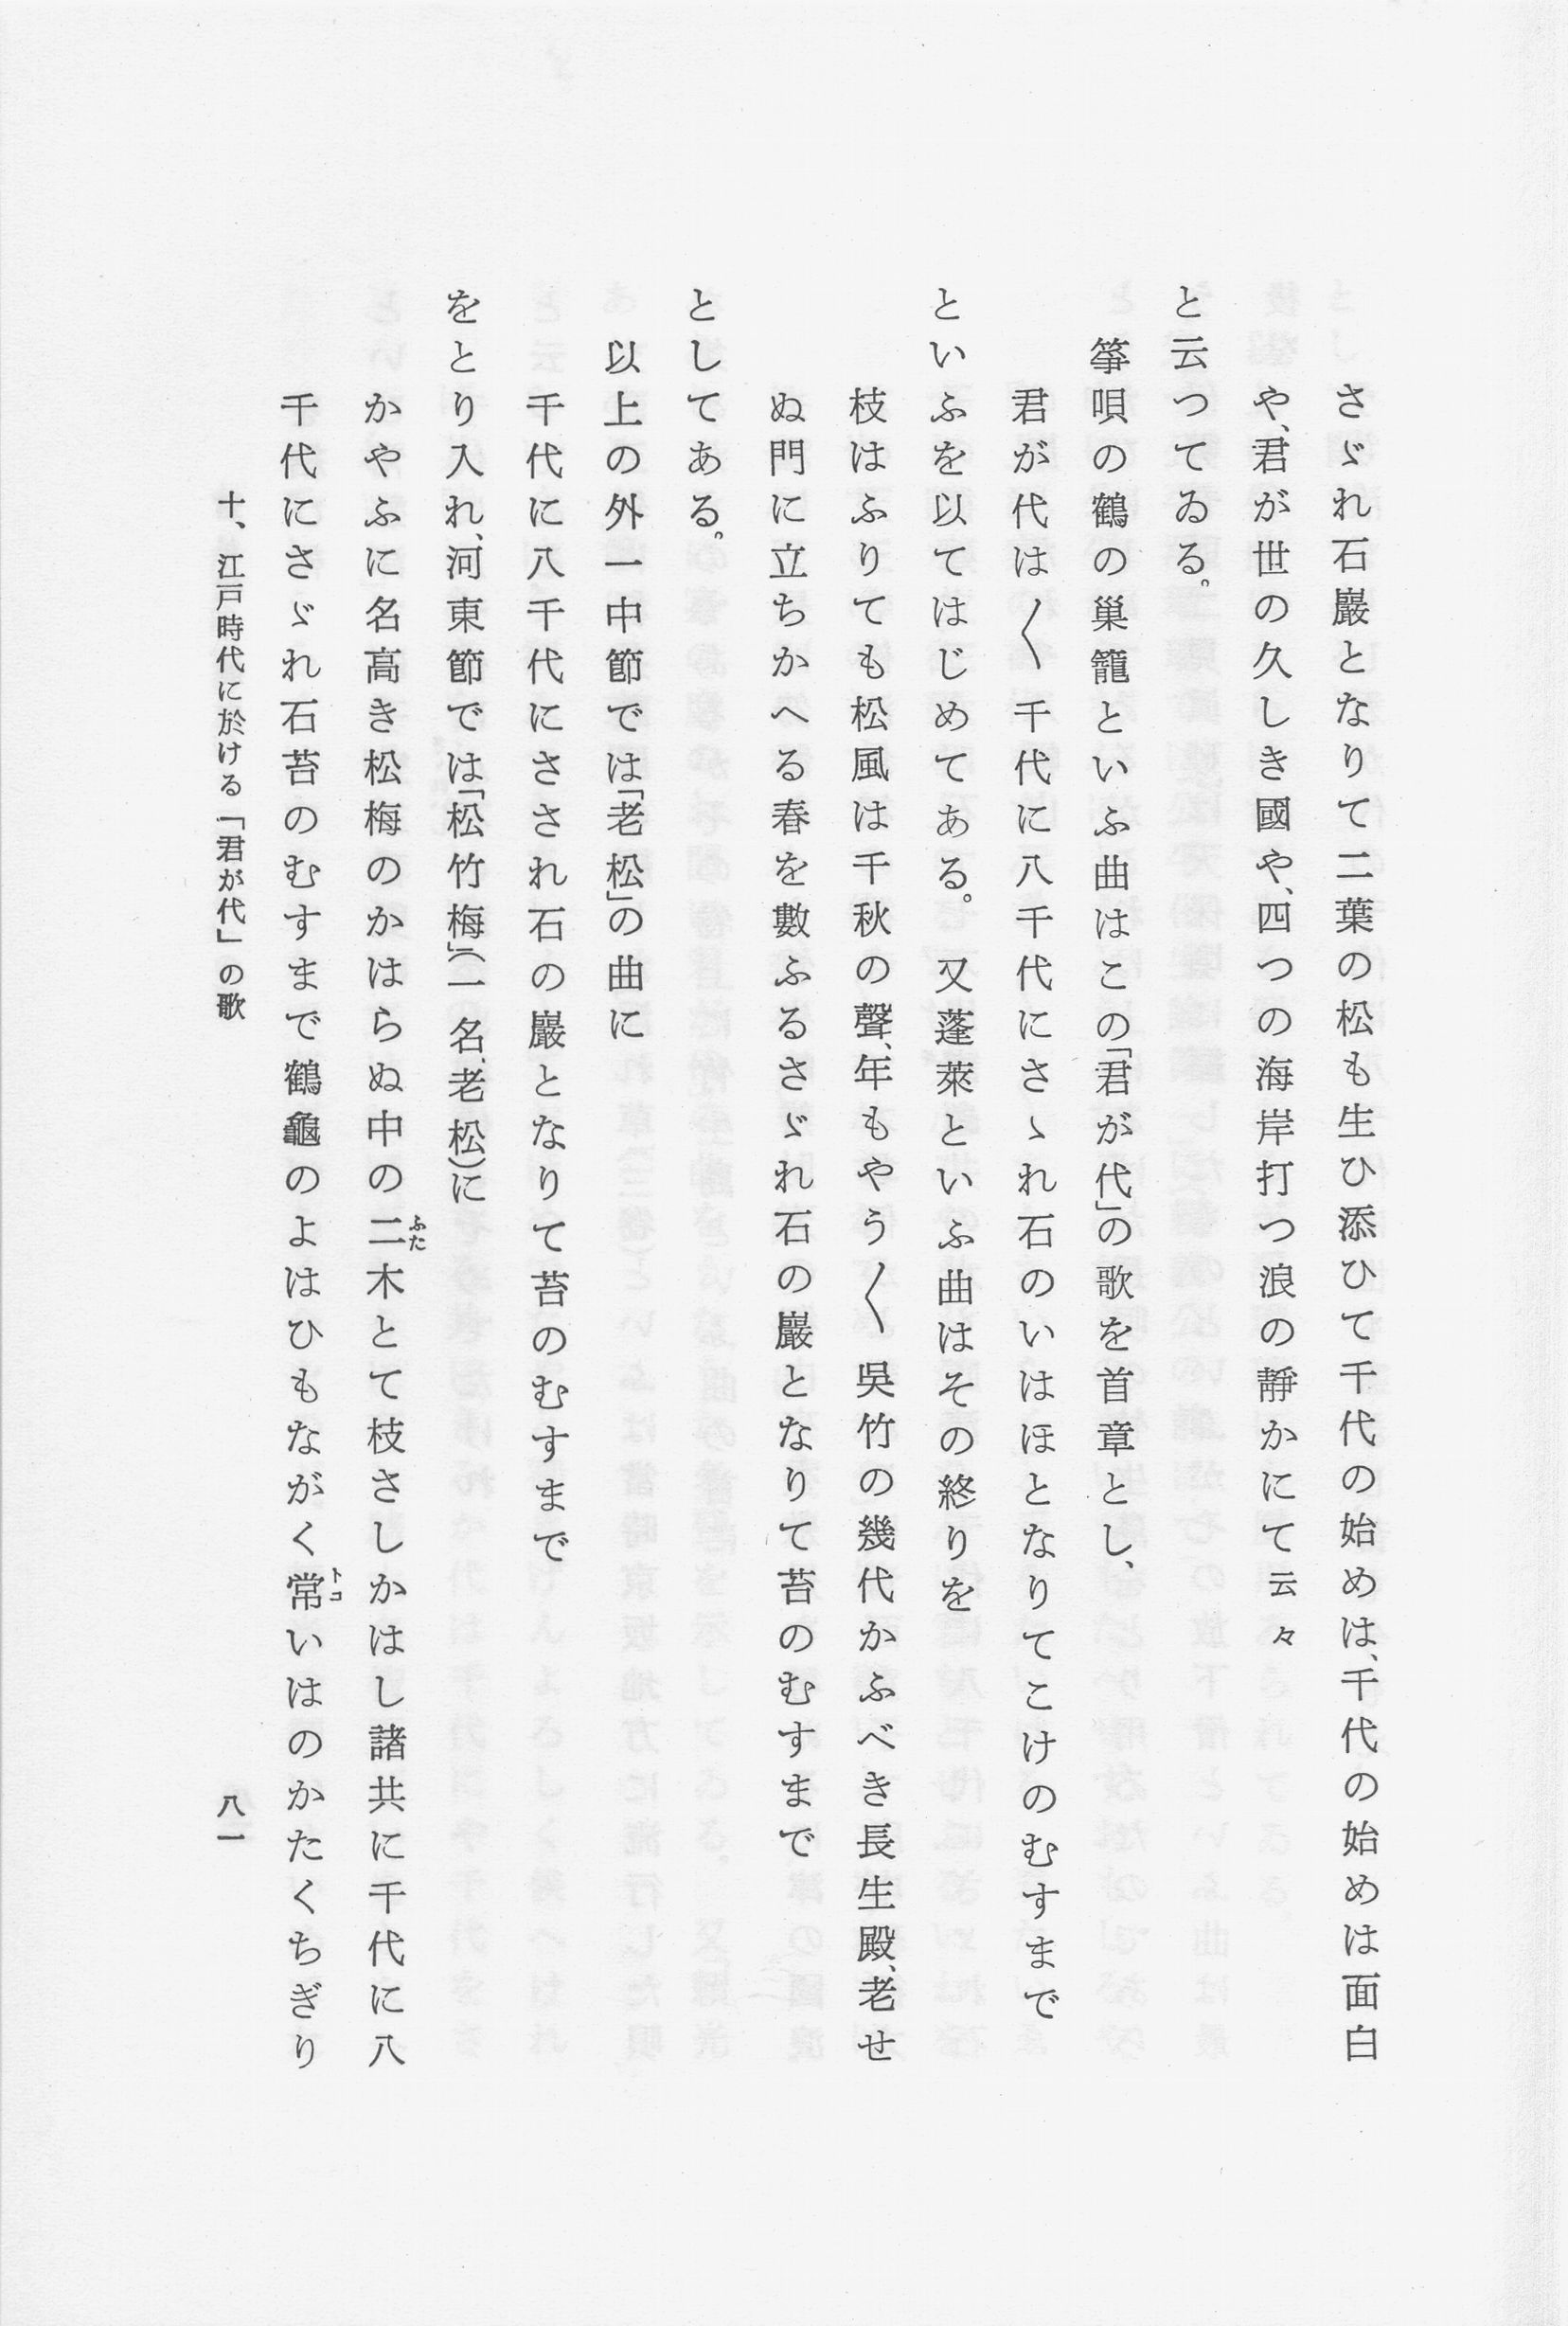 さゞれ石巖となりて二葉の松も生ひ添ひて千代の始めは、千代の始めは面白
や、君が世の久しき國や、四つの海岸打つ浪の靜かにて云々
と云つてゐる。
箏唄の鶴の巣籠といふ曲はこの「君が代」の歌を首章とし、
君が代は〱千代に八千代にさゝれ石のいはほとなりてこけのむすまで
といふを以てはじめてある。又蓬萊といふ曲はその終りを
枝はふりても松風は千秋の聲、年もやう〱呉竹の幾代かふべき長生殿、老せ
ぬ門に立ちかへる春を數ふるさゞれ石の巖となりて苔のむすまで
としてある。
以上の外一中節では「老松」の曲に
千代に八千代にさされ石の巖となりて苔のむすまで
をとり入れ、河東節では「松竹梅」(一名、老松)に
かやふに名高き松梅のかはらぬ中の二木とて枝さしかはし諸共に千代に八
ふた
千代にさゞれ石苔のむすまで鶴龜のよはひもながく常いはのかたくちぎり
トコ
十、江戸時代に於ける「君が代」の歌
八一